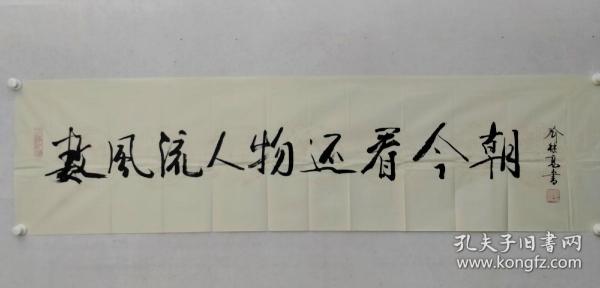 数风流人物还看今朝
孔夫子旧书网
www.kongfz.com